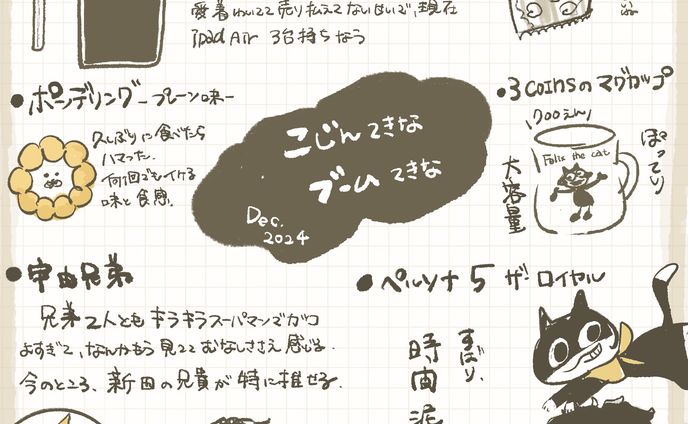 愛着わいてて売り払えてないせいで、現在
ipad Air 3台持ちなう
●ポンデリング-プレーン味-
久しぶりに食べたら
ハマった.
何個でもイケる
味と食感.
こじんてきな
ブームてきな
Dec.
2024
●3coinsのマグカップ
700えん
Felix the cat
ぽってり
大容量
●宇宙兄弟
兄弟2人ともキラキラスーパマンでカッコ
よすぎて、なんかもう見ててむなしささえ感じる.
今のところ、新田の兄貴が特に推せる.
●ペルソナ5 ザ・ロイヤル
ずばり、
時間泥